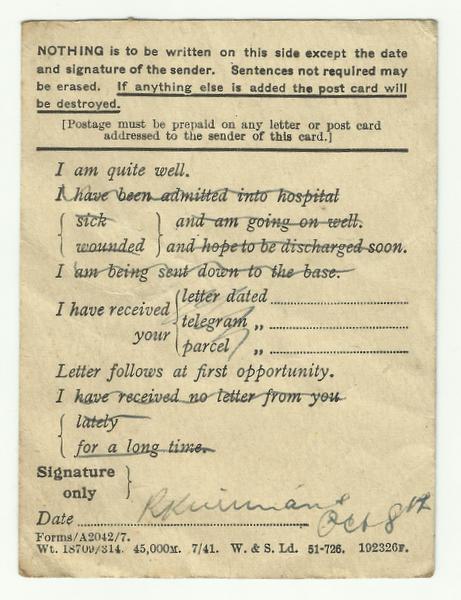 NOTHING is to be written on this side except the date
and signature of the sender. Sentences not required may
be erased. If anything else is added the post card will
be destroyed.
[Postage must be prepaid on any letter or post card
addressed to the sender of this card.]
I am quite well.
I have been admitted into hospital
sick and am going on well.
wounded and hope to be discharged soon.
I am being sent down to the base.
letter dated
I have received telegram „
your parcel „
Letter follows at first opportunity.
I have received no letter from you
lately
for a long time.
Signature
only
Date Oct 8th
Forms/A2042/7.
Wt. 18709/314. 45,000M. 7/41. W. & S. Ld. 51-726. 192326F.